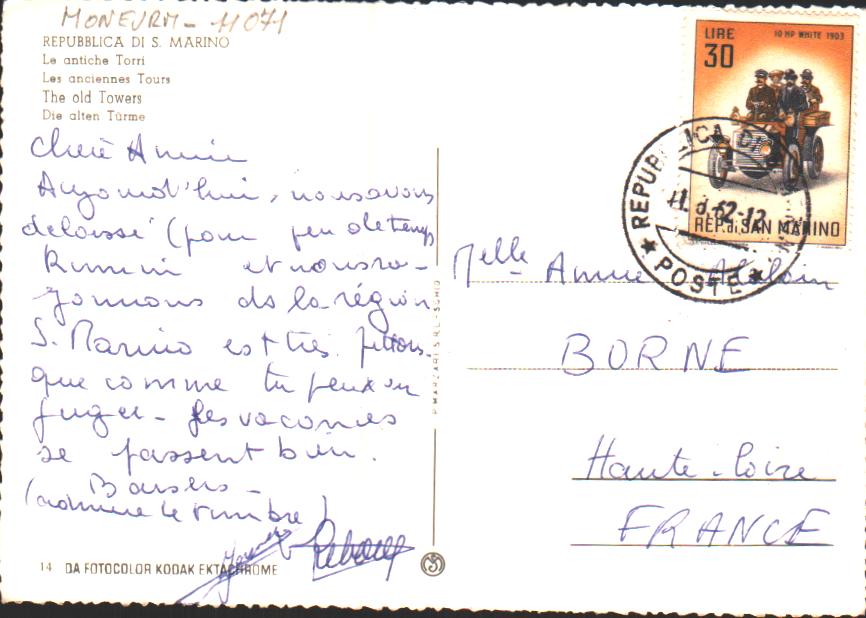 MONEURM - 11071
REPUBBLICA DI S. MARINO
Le antiche Torri
Les anciennes Tours
The old Towers
Die alten Türme
LIRE
30
10 HP WHITE 1903
REP. di SAN MARINO
REPUBBLICA DI
62-12
★ POSTE ★
Chère Annie
Aujourd'hui, nous avons
délaissé (pour peu de temps
Rimini et nous ra-
yonnons ds la région
S. Marino est très pittores
que comme tu peux en
juger - Les vacances
se passent bien.
Baisers -
(admire le timbre)
Melle Annie
BORNE
Haute-Loire
FRANCE
14 DA FOTOCOLOR KODAK EKTACHROME